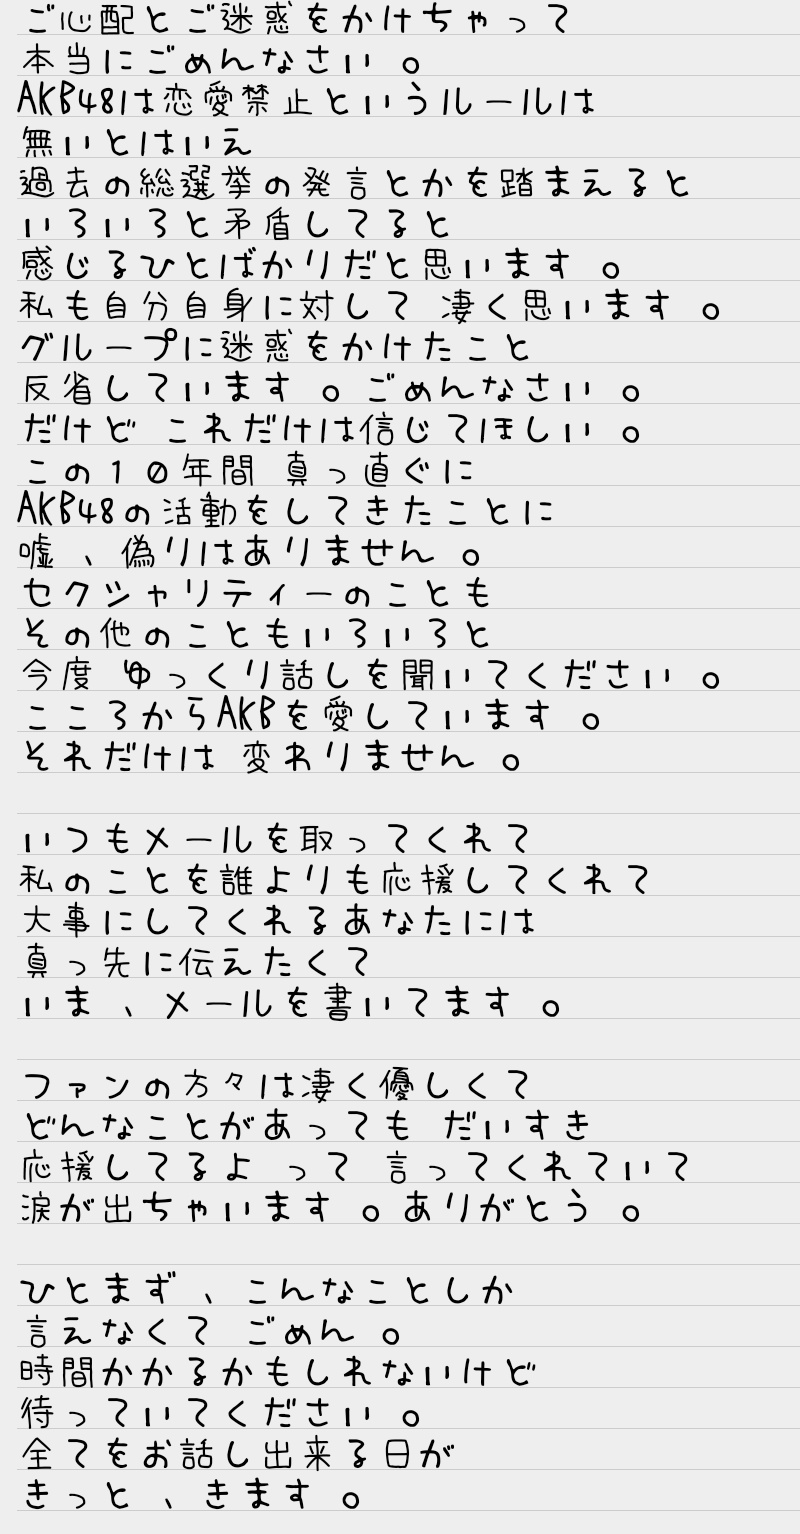 ご心配とご迷惑をかけちゃって
本当にごめんなさい 。
AKB48は恋愛禁止というルールは
無いとはいえ
過去の総選挙の発言とかを踏まえると
いろいろと矛盾してると
感じるひとばかりだと思います 。
私も自分自身に対して 凄く思います 。
グループに迷惑をかけたこと
反省しています 。ごめんなさい 。
だけど これだけは信じてほしい 。
この10年間 真っ直ぐに
AKB48の活動をしてきたことに
嘘 、偽りはありません 。
セクシャリティーのことも
その他のこともいろいろと
今度 ゆっくり話しを聞いてください 。
こころからAKBを愛しています 。
それだけは 変わりません 。
いつもメールを取ってくれて
私のことを誰よりも応援してくれて
大事にしてくれるあなたには
真っ先に伝えたくて
いま 、メールを書いてます 。
ファンの方々は凄く優しくて
どんなことがあっても だいすき
応援してるよ って 言ってくれていて
涙が出ちゃいます 。ありがとう 。
ひとまず 、こんなことしか
言えなくて ごめん 。
時間かかるかもしれないけど
待っていてください 。
全てをお話し出来る日が
きっと 、きます 。